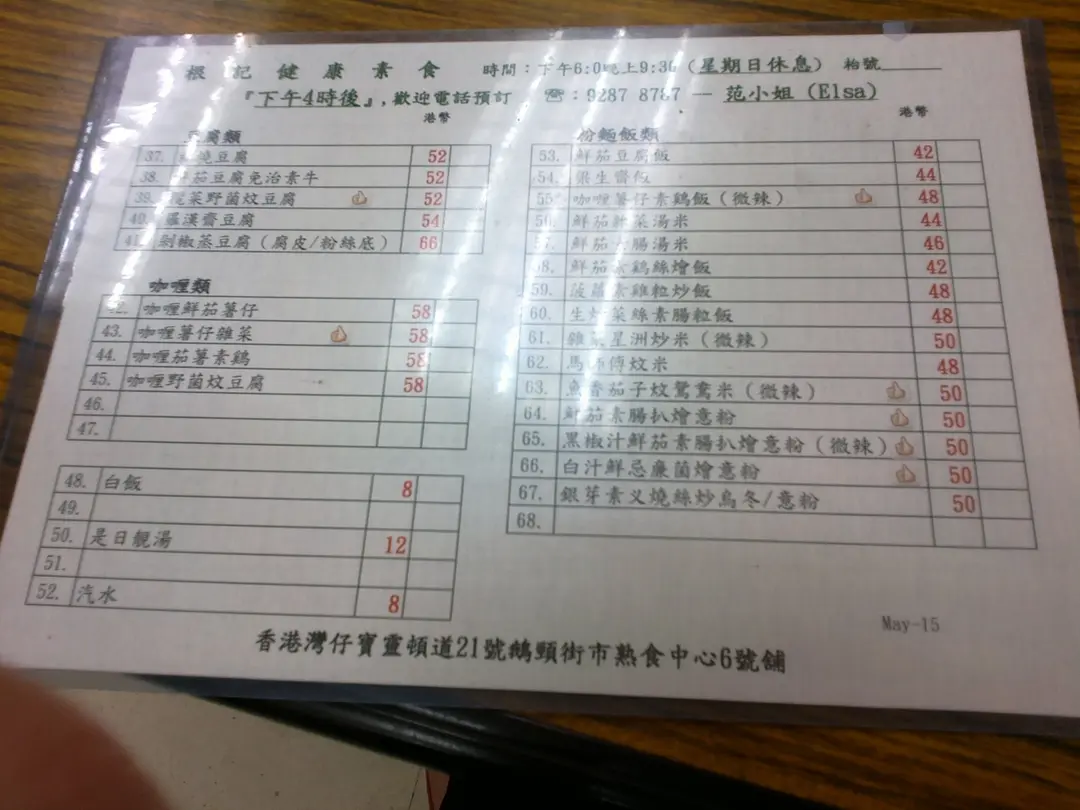 根記健康素食 時間：下午6:0 晚上9:30（星期日休息） 枱號
『下午4時後』，歡迎電話預訂 ☎：9287 8787 — 范小姐 (Elsa)
港幣
豆腐類
37. 燒豆腐 52
38. 茄豆腐免治素牛 52
39. 菜野菌炆豆腐 52
40. 羅漢齋豆腐 54
41. 剁椒蒸豆腐（腐皮/粉絲底） 66
咖喱類
42. 咖喱鮮茄薯仔 58
43. 咖喱薯仔雜菜 58
44. 咖喱茄薯素鷄 58
45. 咖喱野菌炆豆腐 58
46.
47.
48. 白飯 8
49.
50. 是日靚湯 12
51.
52. 汽水 8
港幣
粉麵飯類
53. 鮮茄豆腐飯 42
54. 生齋飯 44
55. 咖喱薯仔素鷄飯（微辣） 48
56. 鮮茄 菜湯米 44
57. 鮮茄 腸湯米 46
58. 鮮茄 鷄絲燴飯 42
59. 菠蘿素雞粒炒飯 48
60. 生 菜絲素腸粒飯 48
61. 雜 星洲炒米（微辣） 50
62. 馬 傅炆米 48
63. 魚香茄子炆鴛鴦米（微辣） 50
64. 鮮茄素腸扒燴意粉 50
65. 黑椒汁鮮茄素腸扒燴意粉（微辣） 50
66. 白汁鮮忌廉菌燴意粉 50
67. 銀芽素义燒絲炒烏冬/意粉 50
68.
May-15
香港灣仔寶靈頓道21號鵝頸街市熟食中心6號舖